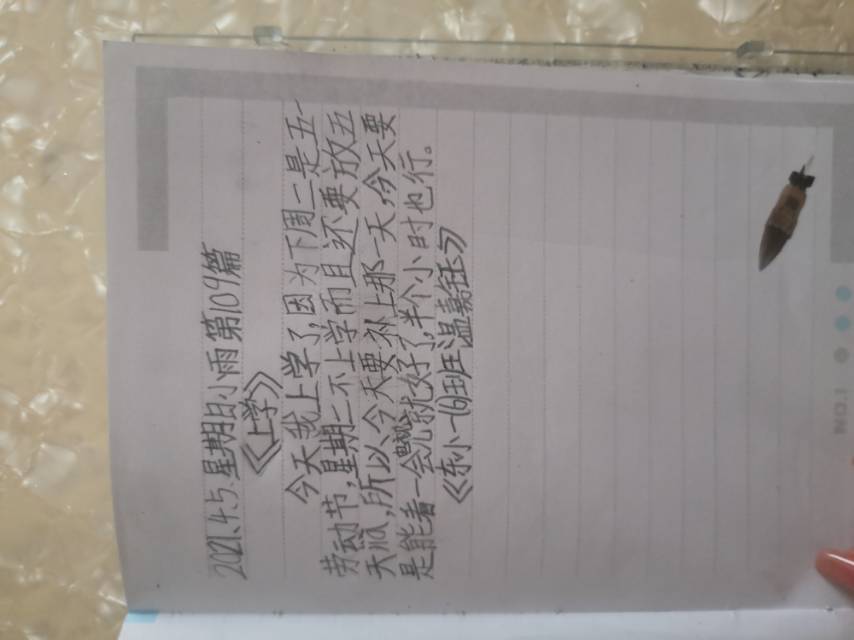 2021.4.5.星期日小雨 第109篇
《上学》
今天我上学了,因为下周一是五一
劳动节,星期二不上学而且还要放五
天假,所以今天要补上那一天,今天要
是能看一会儿电视就好了,半个小时也行。
《东小一(6)班 温嘉钰》